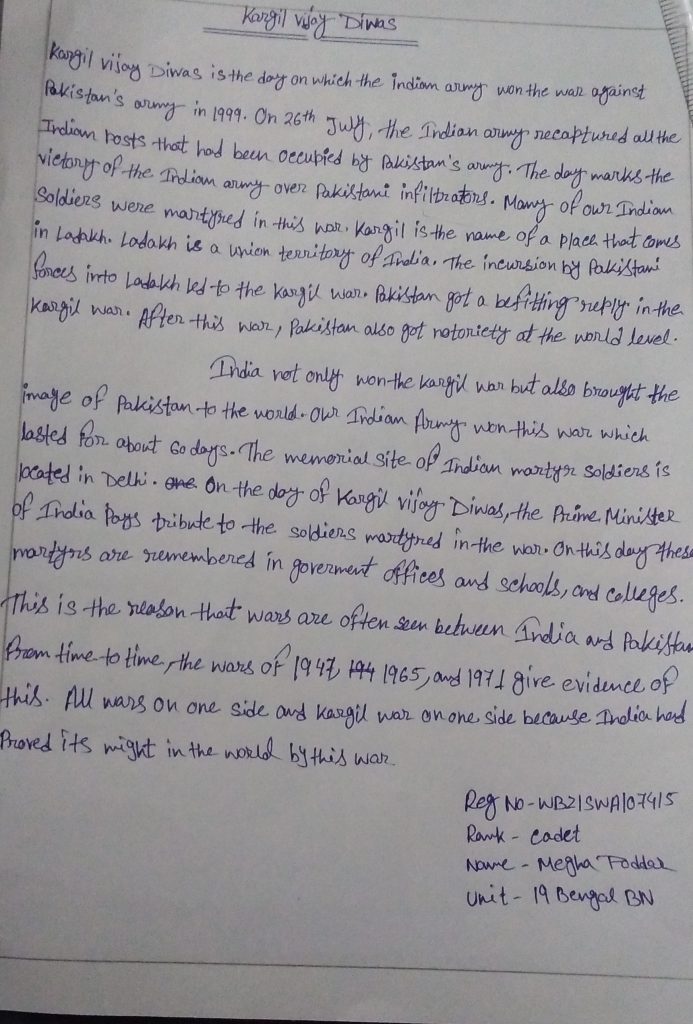 Kargil vijay Diwas
Kargil vijay Diwas is the day on which the indian army won the war against
Pakistan's army in 1999. On 26th July, the Indian army recaptured all the
Indian posts that had been occupied by Pakistan's army. The day marks the
victory of the Indian army over Pakistani infiltrators. Many of our Indian
Soldiers were martyred in this war. Kargil is the name of a place that comes
in Ladakh. Ladakh is a union territory of India. The incursion by Pakistani
forces into Ladakh led to the Kargil war. Pakistan got a befitting reply in the
Kargil war. After this war, Pakistan also got notoriety at the world level.
India not only won the Kargil war but also brought the
image of Pakistan to the world. Our Indian Army won this war which
lasted for about 60 days. The memorial site of Indian martyr soldiers is
located in Delhi. one On the day of Kargil vijay Diwas, the Prime Minister
of India Pays tribute to the soldiers martyred in the war. On this day these
martyrs are remembered in goverment offices and schools, and colleges.
This is the reason that wars are often seen between India and Pakistan
from time to time, the wars of 1947, 194 1965, and 1971 give evidence of
this. All wars on one side and Kargil war on one side because India had
Proved its might in the world by this war.
Reg No - WB21SWA107415
Rank - cadet
Name - Megha Foddar
Unit - 19 Bengal BN